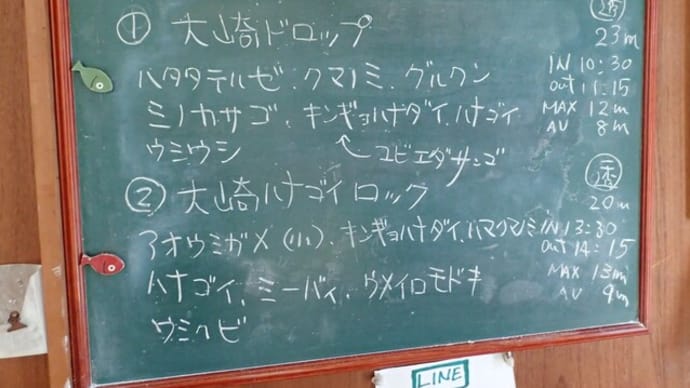 ① 大崎ドロップ
透
23m
ハタタテハゼ、クマノミ、グルクン
IN 10:30
out 11:15
ミノカサゴ、キンギョハナダイ、ハナゴイ
MAX 12m
AV 8m
ウミウシ
ユビエダサンゴ
② 大崎ハナゴイロック
透
20m
アオウミガメ(小)、キンギョハナダイ、ハマクマノミ
IN 13:30
out 14:15
ハナゴイ、ミーバイ、ウメイロモドキ
MAX 13m
AV 9m
ウミヘビ
LINE